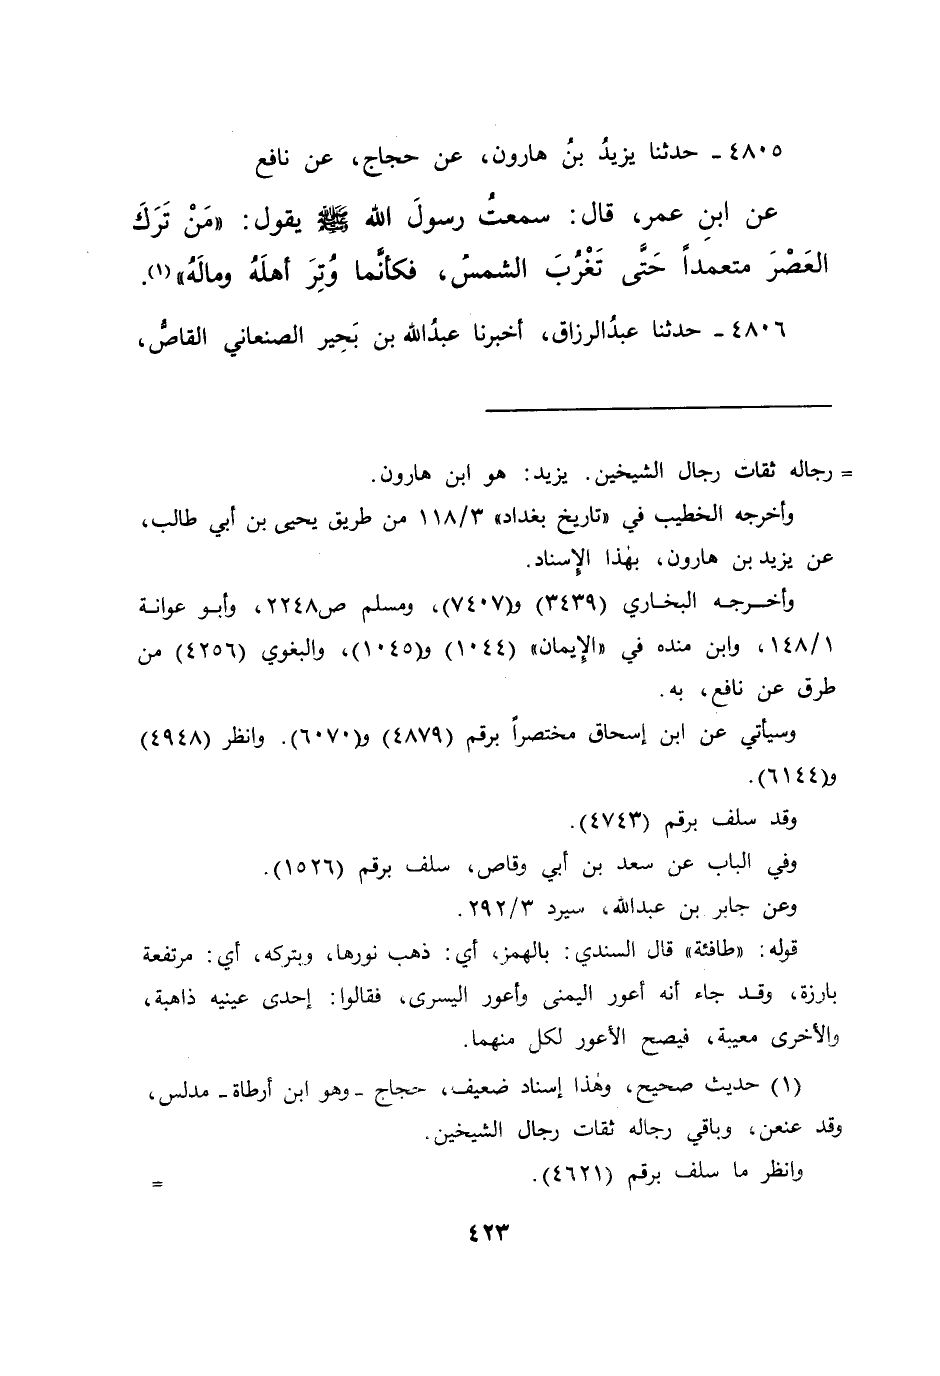 ٤٨٠٥ ـ حدثنا يزيدُ بنُ هارون، عن حجاج، عن نافع
عن ابنِ عمر، قال: سمعتُ رسولَ الله ﷺ يقول: «مَنْ تَرَكَ
العَصْرَ متعمداً حَتَّى تَغْرُبَ الشمسُ، فكأنَّما وُتِرَ أهلَهُ ومالَهُ»(١).
٤٨٠٦ ـ حدثنا عبدُالرزاق، أخبرنا عبدُالله بن بَحِير الصنعاني القاصُّ،
= رجاله ثقات رجال الشيخين. يزيد: هو ابن هارون.
وأخرجه الخطيب في «تاريخ بغداد» ١١٨/٣ من طريق يحيى بن أبي طالب،
عن يزيد بن هارون، بهٰذا الإِسناد.
وأخـرجـه البخـاري (٣٤٣٩) و(٧٤٠٧)، ومسلم ص٢٢٤٨، وأبـو عوانـة
١٤٨/١، وابن منده في «الإِيمان» (١٠٤٤) و(١٠٤٥)، والبغوي (٤٢٥٦) من
طرق عن نافع، به.
وسيأتي عن ابن إسحاق مختصراً برقم (٤٨٧٩) و(٦٠٧٠). وانظر (٤٩٤٨)
و(٦١٤٤).
وقد سلف برقم (٤٧٤٣).
وفي الباب عن سعد بن أبي وقاص، سلف برقم (١٥٢٦).
وعن جابر بن عبدالله، سيرد ٢٩٢/٣.
قوله: «طافئة» قال السندي: بالهمز، أي: ذهب نورها، وبتركه، أي: مرتفعة
بارزة، وقـد جاء أنه أعور اليمنى وأعور اليسرى، فقالوا: إحدى عينيه ذاهبة،
والأخرى معيبة، فيصح الأعور لكل منهما.
(١) حديث صحيح، وهٰذا إسناد ضعيف، حجاج ـ وهو ابن أرطاة ـ مدلس،
وقد عنعن، وباقي رجاله ثقات رجال الشيخين.
وانظر ما سلف برقم (٤٦٢١).
=
٤٢٣